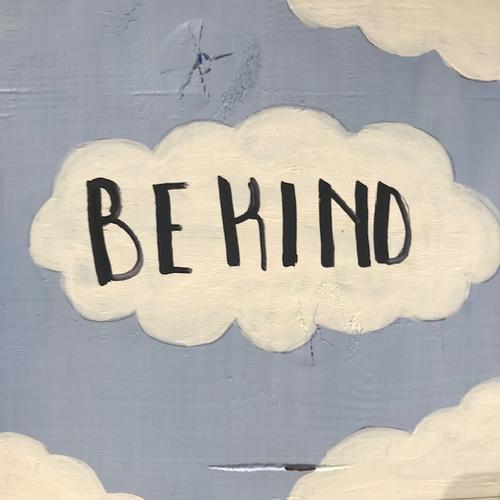 BE KIND